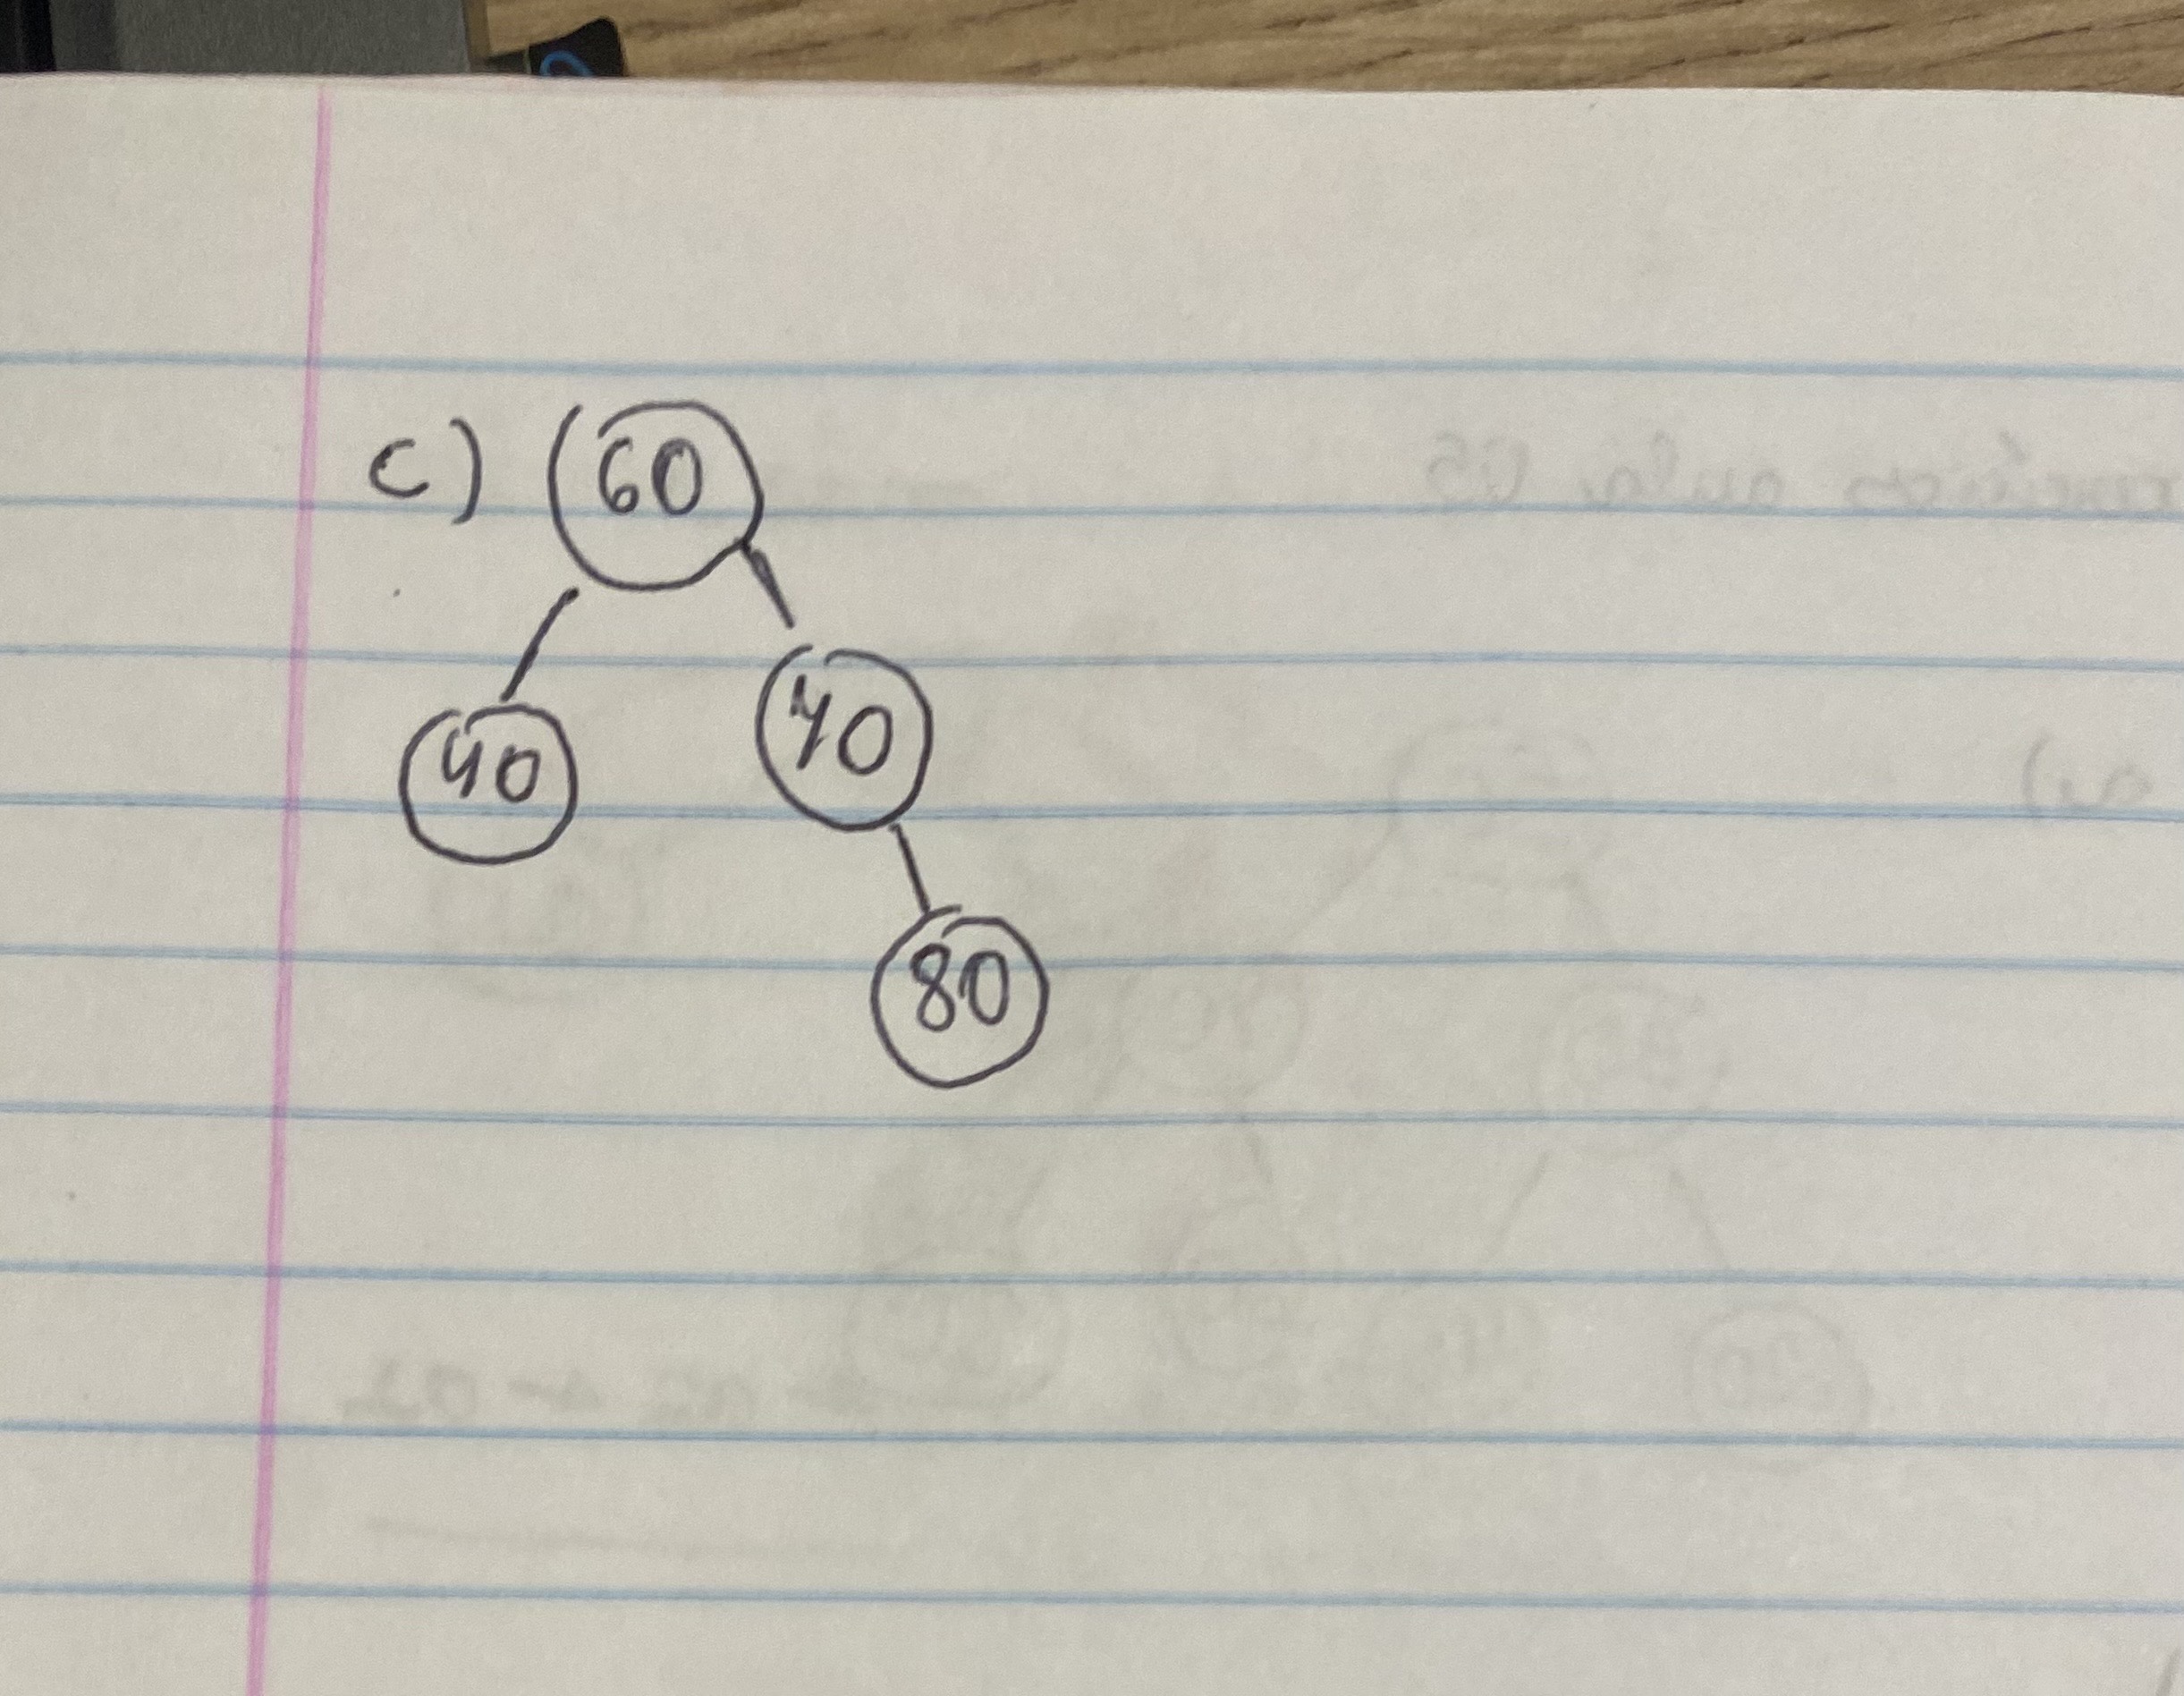 c) 60
40 70
80